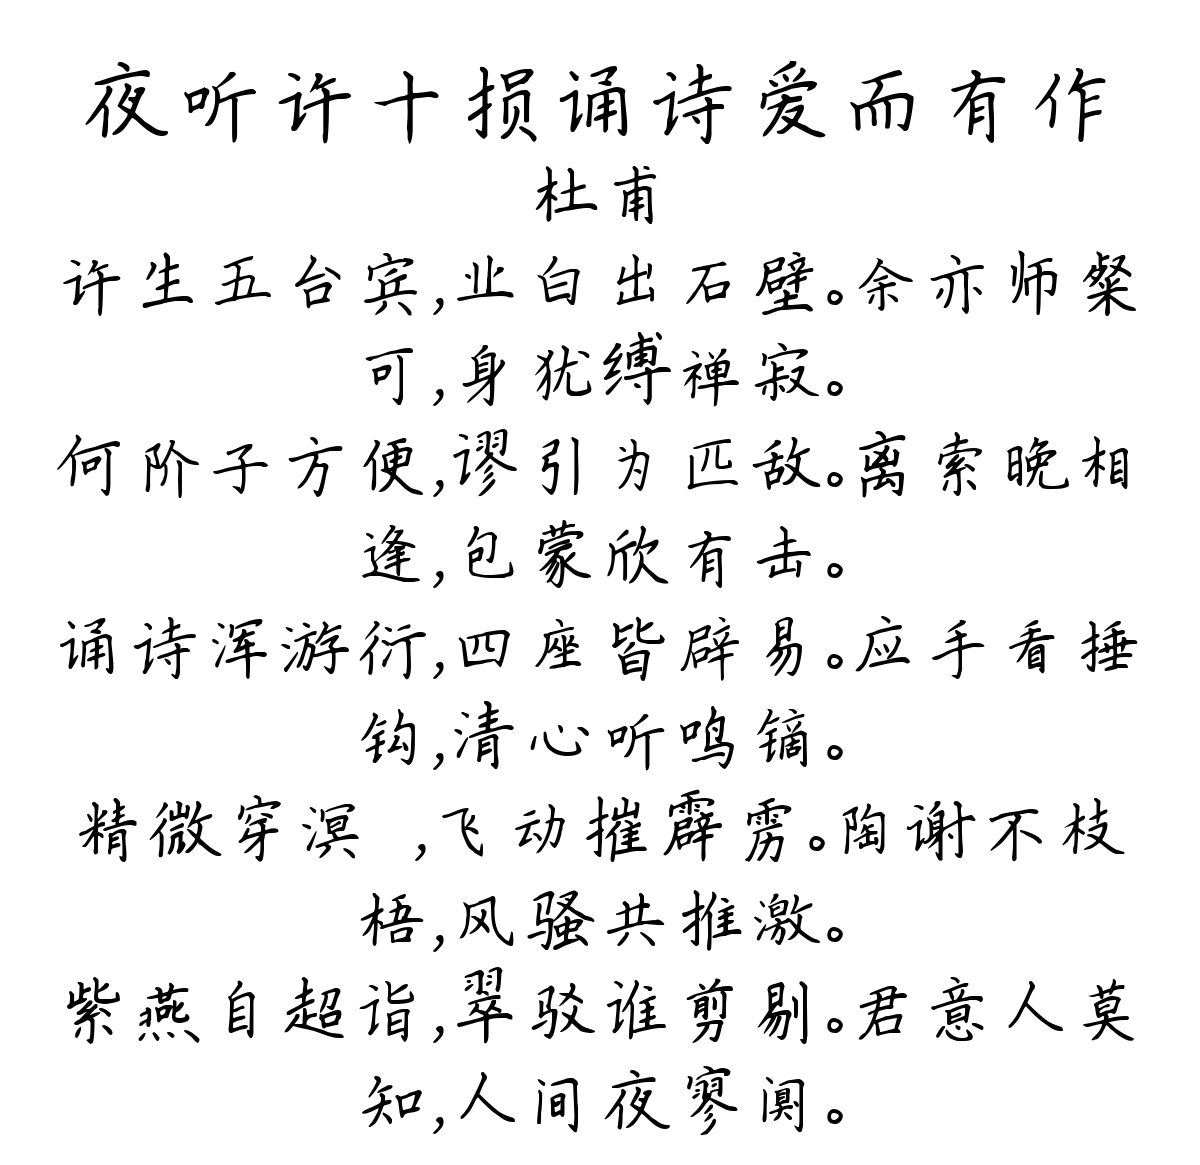 夜听许十损诵诗爱而有作
杜甫
许生五台宾,业白出石壁。余亦师粲
可,身犹缚禅寂。
何阶子方便,谬引为匹敌。离索晚相
逢,包蒙欣有击。
诵诗浑游衍,四座皆辟易。应手看捶
钩,清心听鸣镝。
精微穿溟 ,飞动摧霹雳。陶谢不枝
梧,风骚共推激。
紫燕自超诣,翠驳谁剪剔。君意人莫
知,人间夜寥阒。